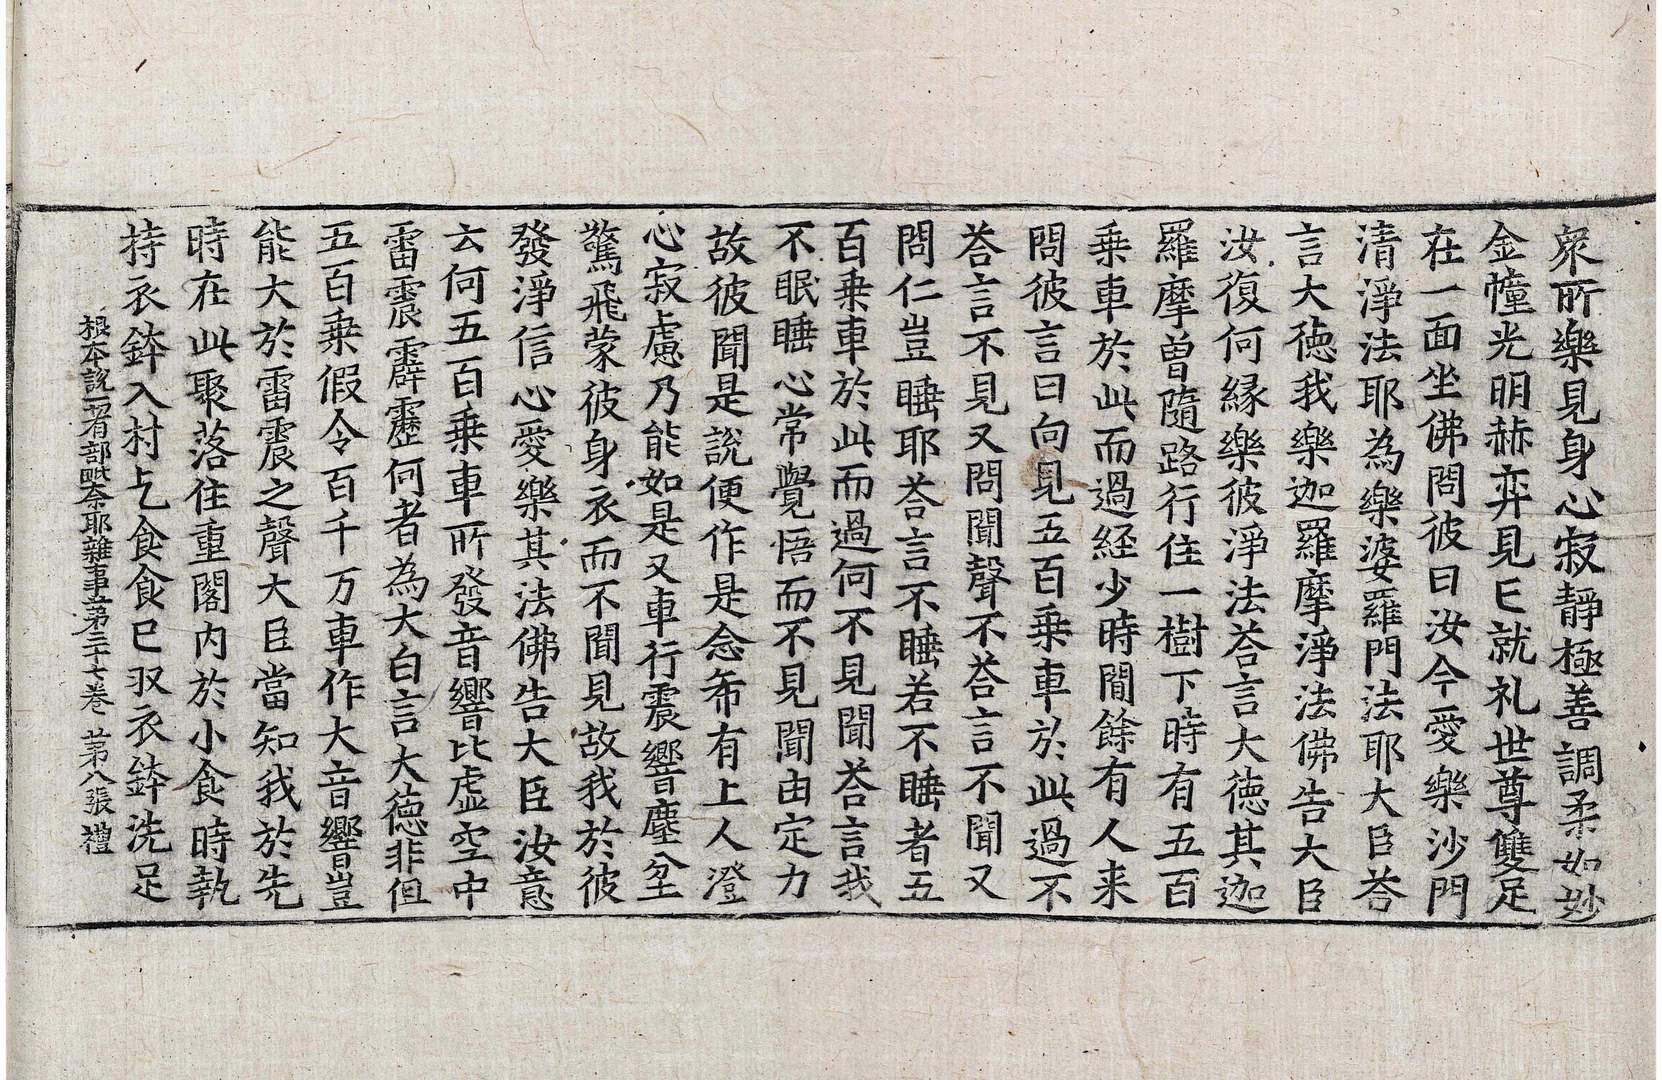 衆所樂見身心寂靜極善調柔如妙
金幢光明赫弈見已就礼世尊雙足
在一面坐佛問彼曰汝今愛樂沙門
清淨法耶為樂婆羅門法耶大臣荅
言大徳我樂迦羅摩淨法佛告大臣
汝復何緣樂彼淨法荅言大徳其迦
羅摩曽隨路行住一樹下時有五百
乗車於此而過経少時閒餘有人来
問彼言曰向見五百乗車於此過不
荅言不見又問聞聲不荅言不聞又
問仁豈睡耶荅言不睡若不睡者五
百乗車於此而過何不見聞荅言我
不眠睡心常覺悟而不見聞由定力
故彼聞是說便作是念希有上人澄
心寂慮乃能如是又車行震響塵坌
驚飛蒙彼身衣而不聞見故我於彼
發淨信心愛樂其法佛告大臣汝意
云何五百乗車所發音響比虛空中
雷震霹靂何者為大白言大徳非但
五百乗假令百千万車作大音響豈
能大於雷震之聲大臣當知我於先
時在此聚落住重閣內於小食時執
持衣鉢入村乞食食已収衣鉢洗足
根本說一有部毗奈耶雜事第三十七卷 苐八張 禮